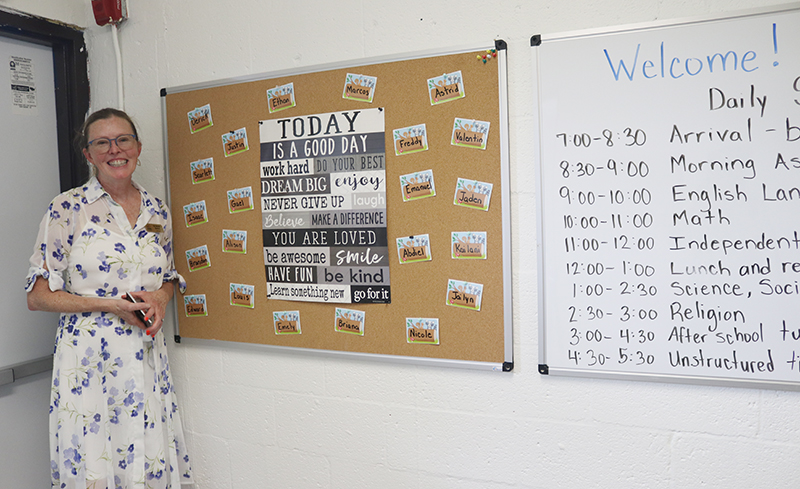 Ethan
Marcos
Astrid
Justin
Freddy
Valentin
Scarlett
Gael
Emanuel
Jaden
Isaac
Abdiel
Jailyn
Louis
Emily
Briana
Nicole
TODAY
IS A GOOD DAY
work hard DO YOUR BEST
DREAM BIG enjoy
NEVER GIVE UP laugh
Believe MAKE A DIFFERENCE
YOU ARE LOVED
be awesome smile
HAVE FUN be kind
Learn something new go for it
Welcome!
Daily S
7:00-8:30 Arrival - b
8:30-9:00 Morning As
9:00-10:00 English Lan
10:00-11:00 Math
11:00-12:00 Independent
12:00-1:00 Lunch and re
1:00-2:30 Science, Soci
2:30-3:00 Religion
3:00-4:30 After school tu
4:30-5:30 Unstructured ti